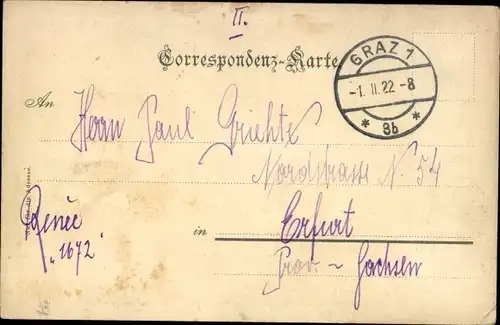 II.
Correspondenz-Karte
GRAZ 1
-1. II. 22 -8
* 3b *
An
Herrn Paul
Nordstrasse N. 54
in Erfurt
Prov - Sachsen
"1672"